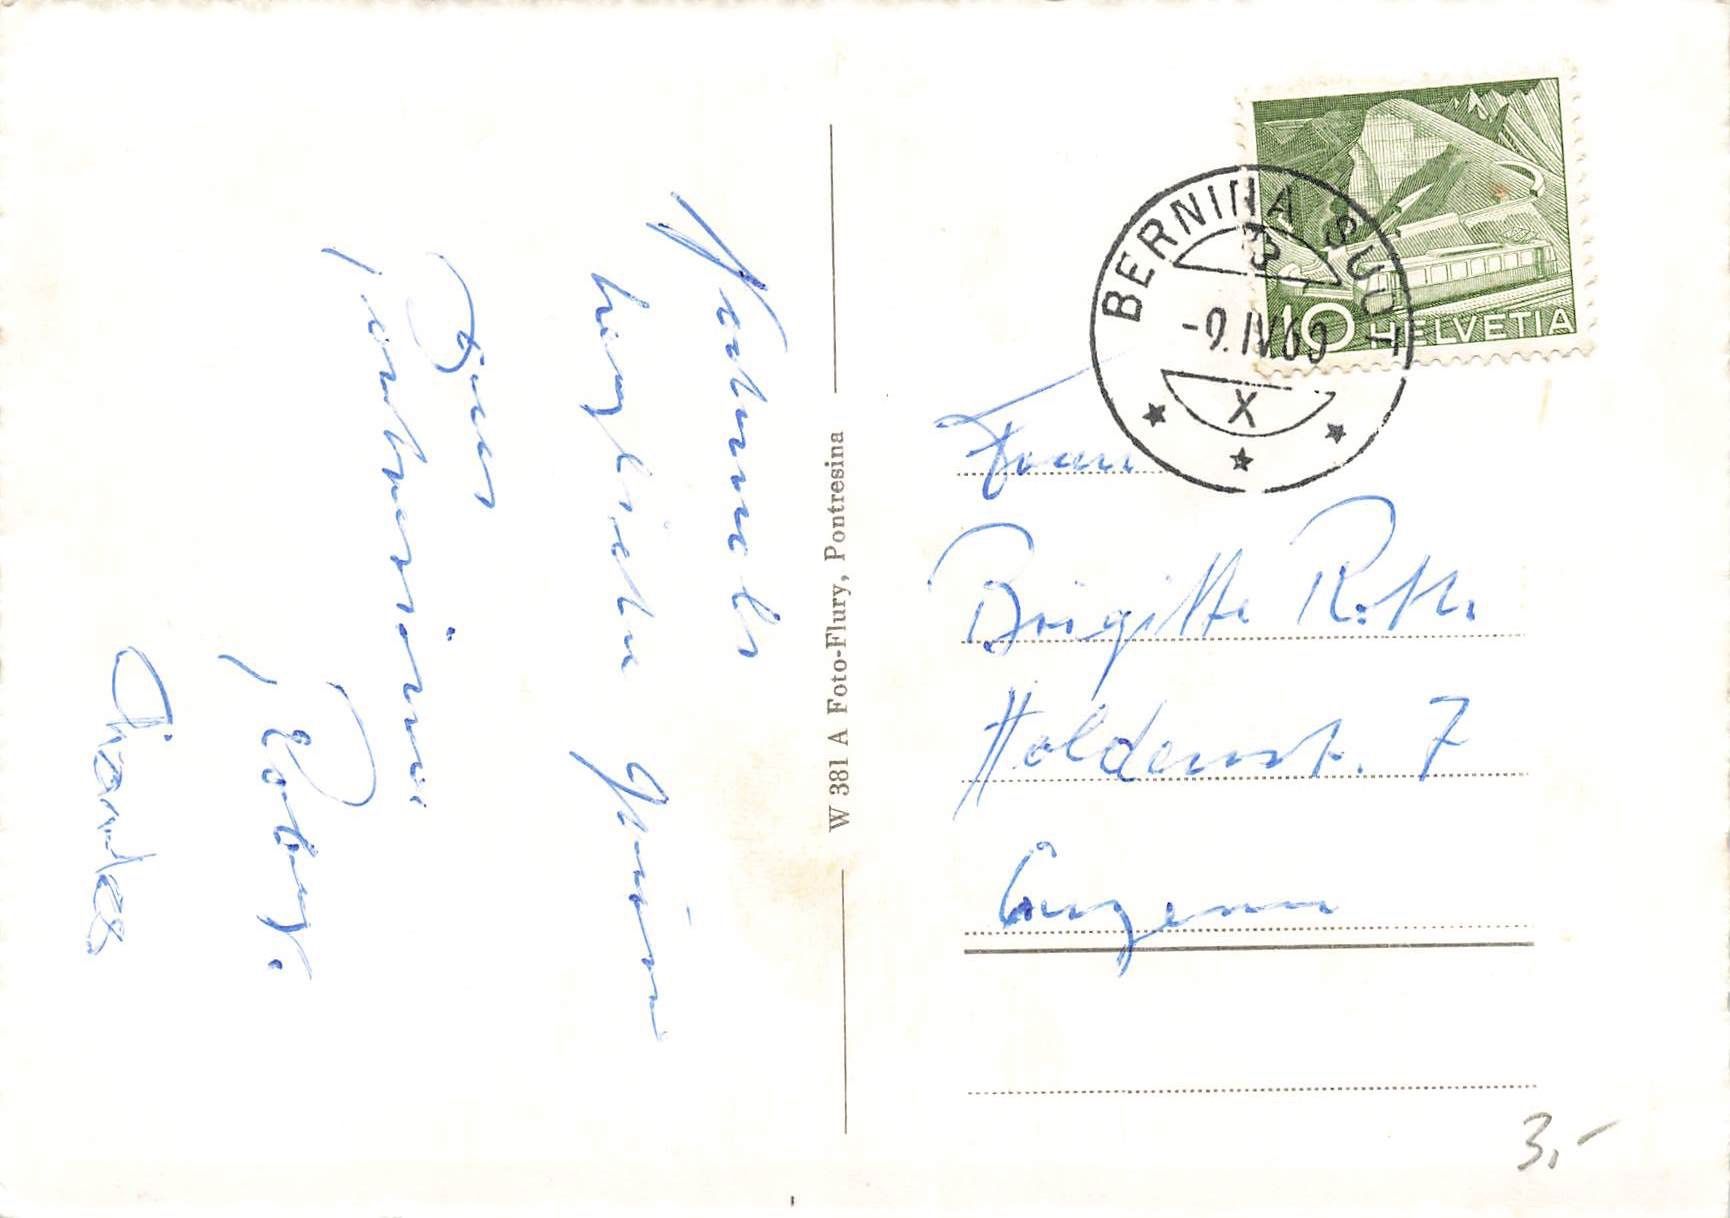 Nochmals
herzliche Grüsse
Charles
W 381 A Foto-Flury, Pontresina
BERNINA SUOT
-9.IV.69
X
10 HELVETIA
Frau
Brigitte Roth
Haldenstr. 7
Luzern
3,-